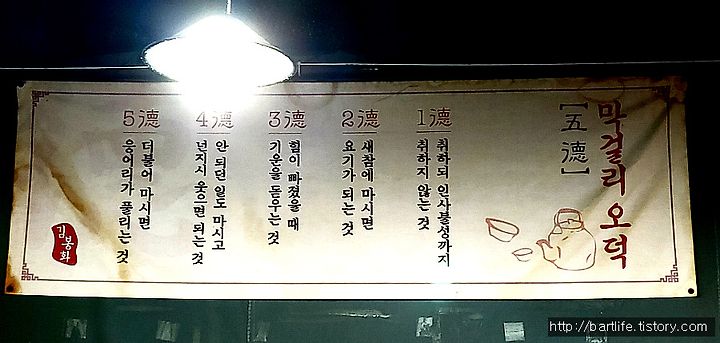 막걸리 오덕
[五德]
1德
취하되 인사불성까지
취하지 않는 것
2德
새참에 마시면
요기가 되는 것
3德
힘이 빠졌을 때
기운을 돋우는 것
4德
안 되던 일도 마시고
넌지시 웃으면 되는 것
5德
더불어 마시면
응어리가 풀리는 것
김봉화
http://bartlife.tistory.com